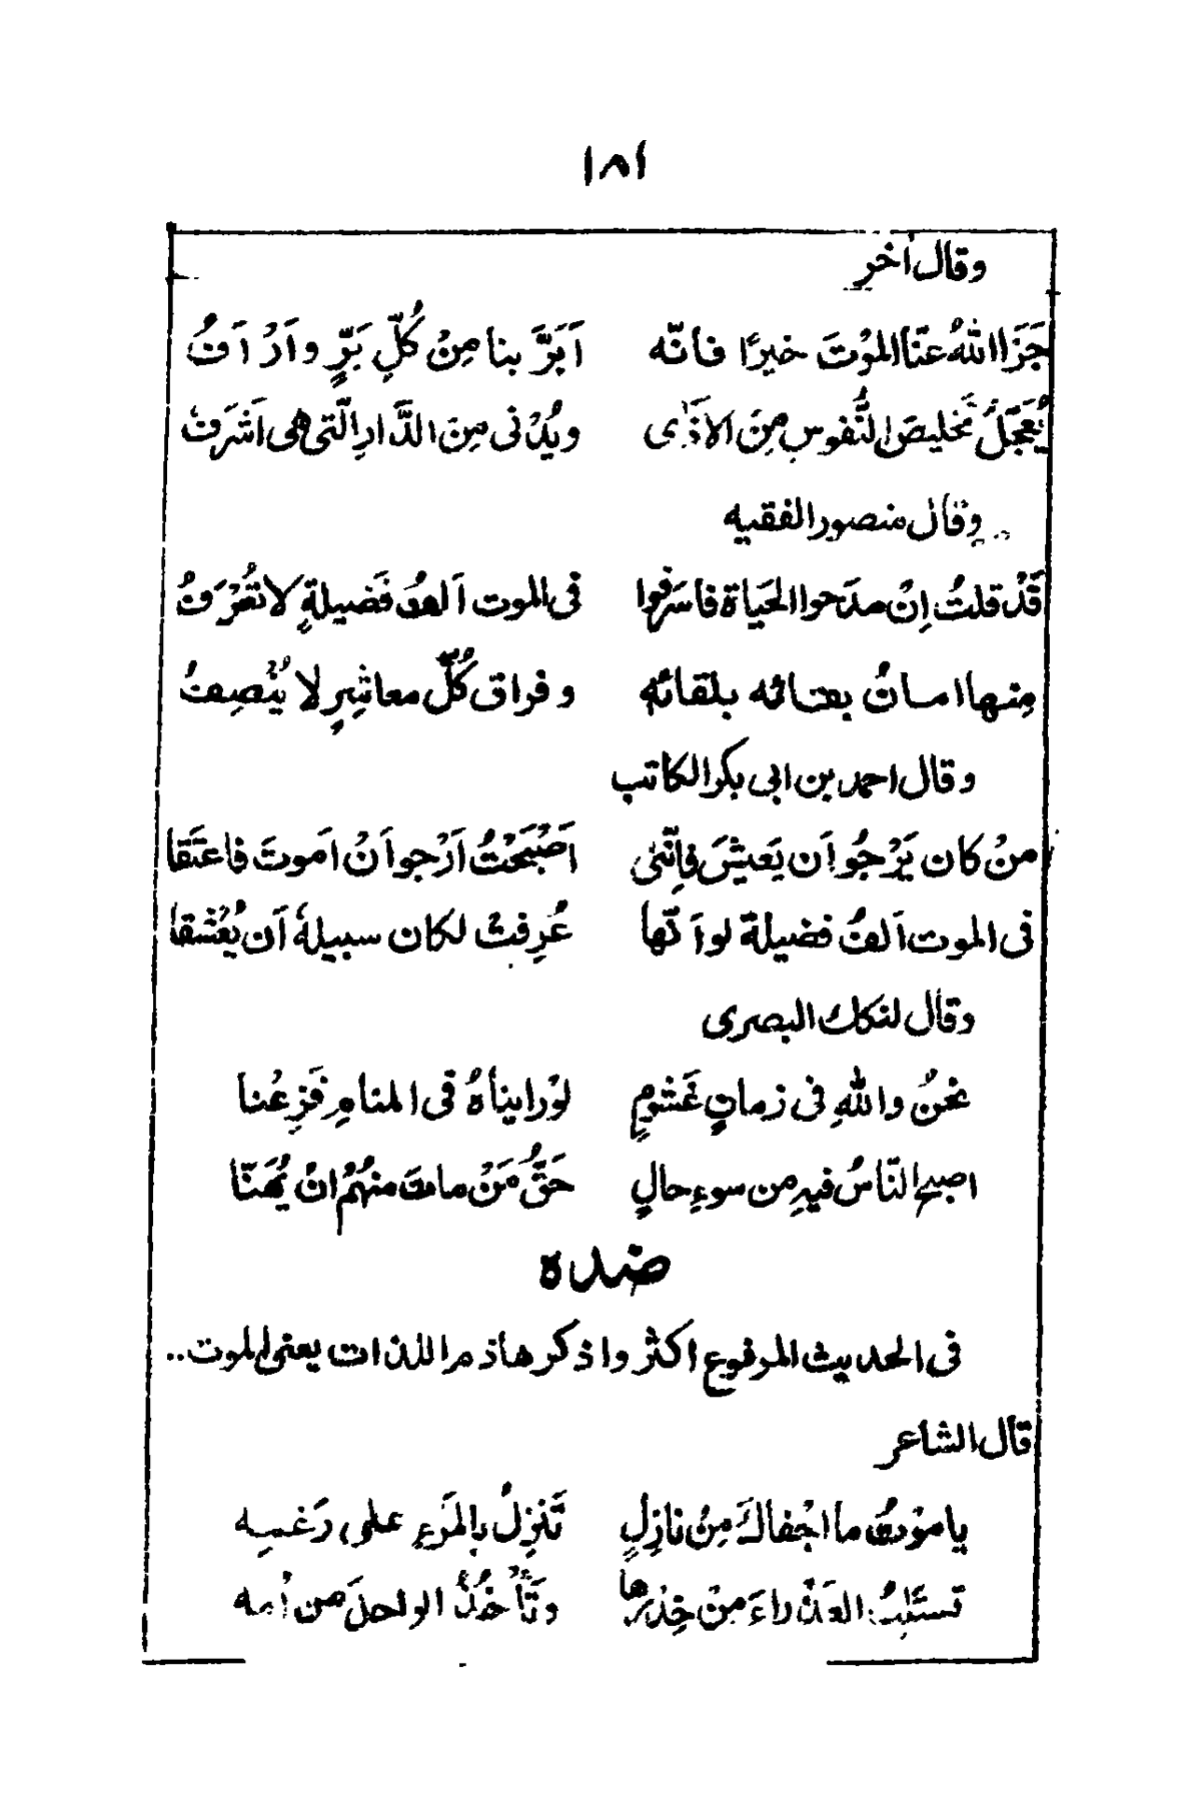 ١٨١
وقال اخر
جَزَا اللهُ عنّا الموْتَ خيرًا فانّه اَبَرَّ بنا مِنْ كُلِّ بَرٍّ واَرْاَفُ
يُعَجِّلُ تخليصَ النُّفوسِ مِنَ الاَذٰى ويُدْنى مِنَ الدَّارِ الّتى هى اَشْرَفُ
وقال منصور الفقيه
قَدْ قلتُ اِنْ مدَحوا الحَياة فاسَرفُوا فى الموت اَلفُ فَضيلةٍ لا تُعْرَفُ
مِنها امانُ بعتائه بلقائه وفراق كُلِّ معاشِرٍ لا يُنْصِفُ
وقال احمد بن ابى بكر الكاتب
منْ كان يَرْجُو اَن يَعيشَ فاِنّنى اَصْبَحْتُ اَرْجو اَنْ اَموتَ فاعتَقا
فى الموت اَلفُ فضيلة لو اَنّها عُرِفتْ لكان سبيلهُ اَن يُعْشقا
وقال لنكك البصرى
نحنُ واللهِ فى زمانٍ غَشومٍ لوْ رايناهُ فى المنامِ فَزِعْنا
اصبح النّاسُ فيهِ من سوءِ حالٍ حَقُّ مَنْ مات منهُمْ انْ يُهَنّا
ضده
فى الحديث المرفوع اكثروا ذكر هاذم اللذات يعنى الموت..
قال الشاعر
يا موْت ما اجْفاكَ مِنْ نازِلٍ تَنزِلُ بالمَرءِ على رَغمِه
تستَلِبُ العَذْراءَ مِنْ خِدْرِها وتَأْخُذُ الواحدَ من اُمه